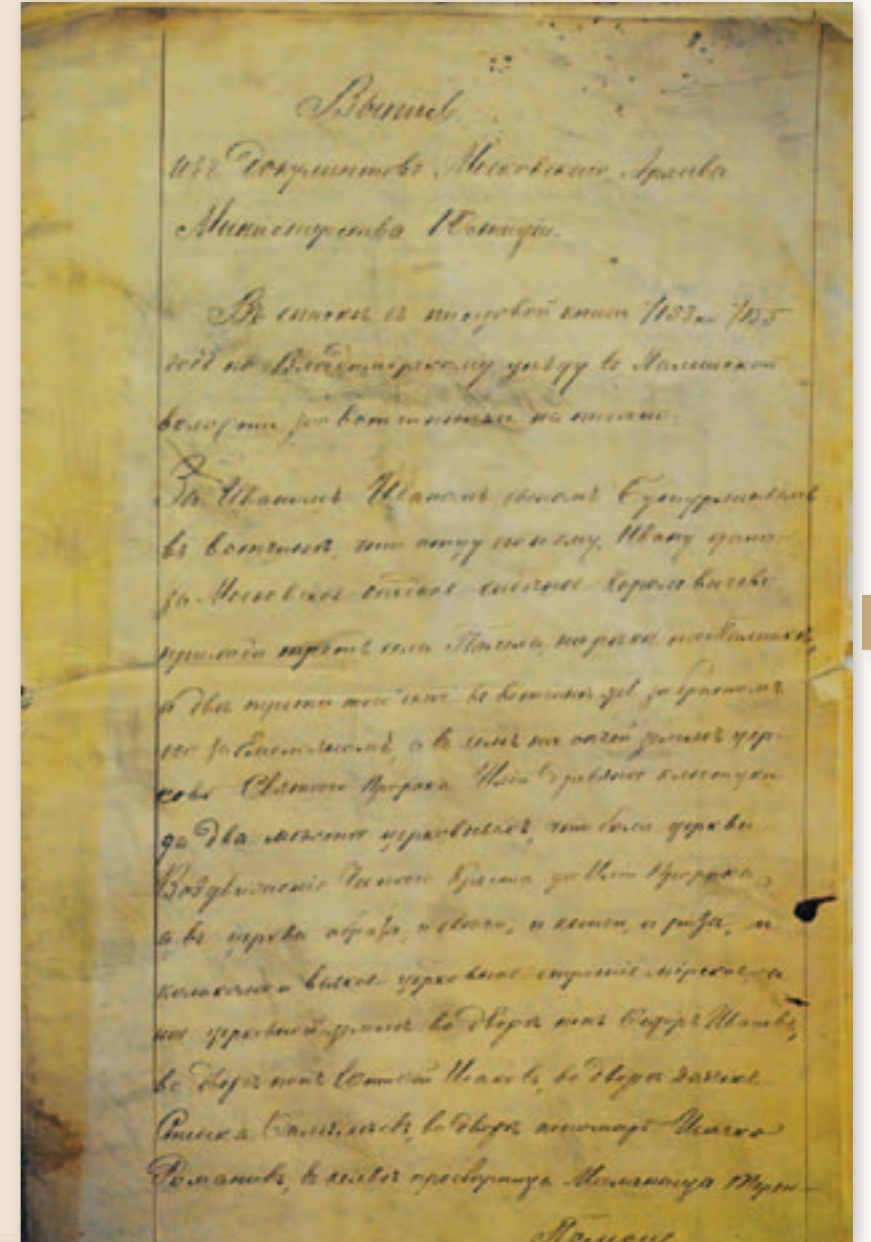 Выпись
изъ Документовъ Московскаго Архива
Министерства Юстиціи.
Въ спискѣ съ писцовой книги 7/153 и 7/155
годъ по Владимірскому уѣзду въ
волости за вотчинники написано:
За Иваномъ Иваномъ сыномъ Бутурлинымъ
въ вотчинѣ, что отцу его Ивану дано
за Московское осадное сидѣнье Королевичева
приходу треть села Палеха, на рѣчкѣ на Палешкѣ,
а двѣ трети того села въ вотчинѣ за братомъ
его за а въ селѣ на ихъ землѣ цер-
ковь Святого Пророка Иліи древяна клетцки
да два мѣста церковныхъ, что были церкви
Воздвиженіе Честнаго Креста да Ильи Пророка,
а въ церкви образа, и свечи, и книги, и ризы, и
колокола и всякое церковное строеніе мірское, а
на церковной землѣ во дворѣ попъ Ивановъ,
во дворѣ попъ Исаковъ, во дворѣ дьячекъ
во дворѣ пономарь Исачко
Романовъ, въ кельѣ просвирница Маланьица